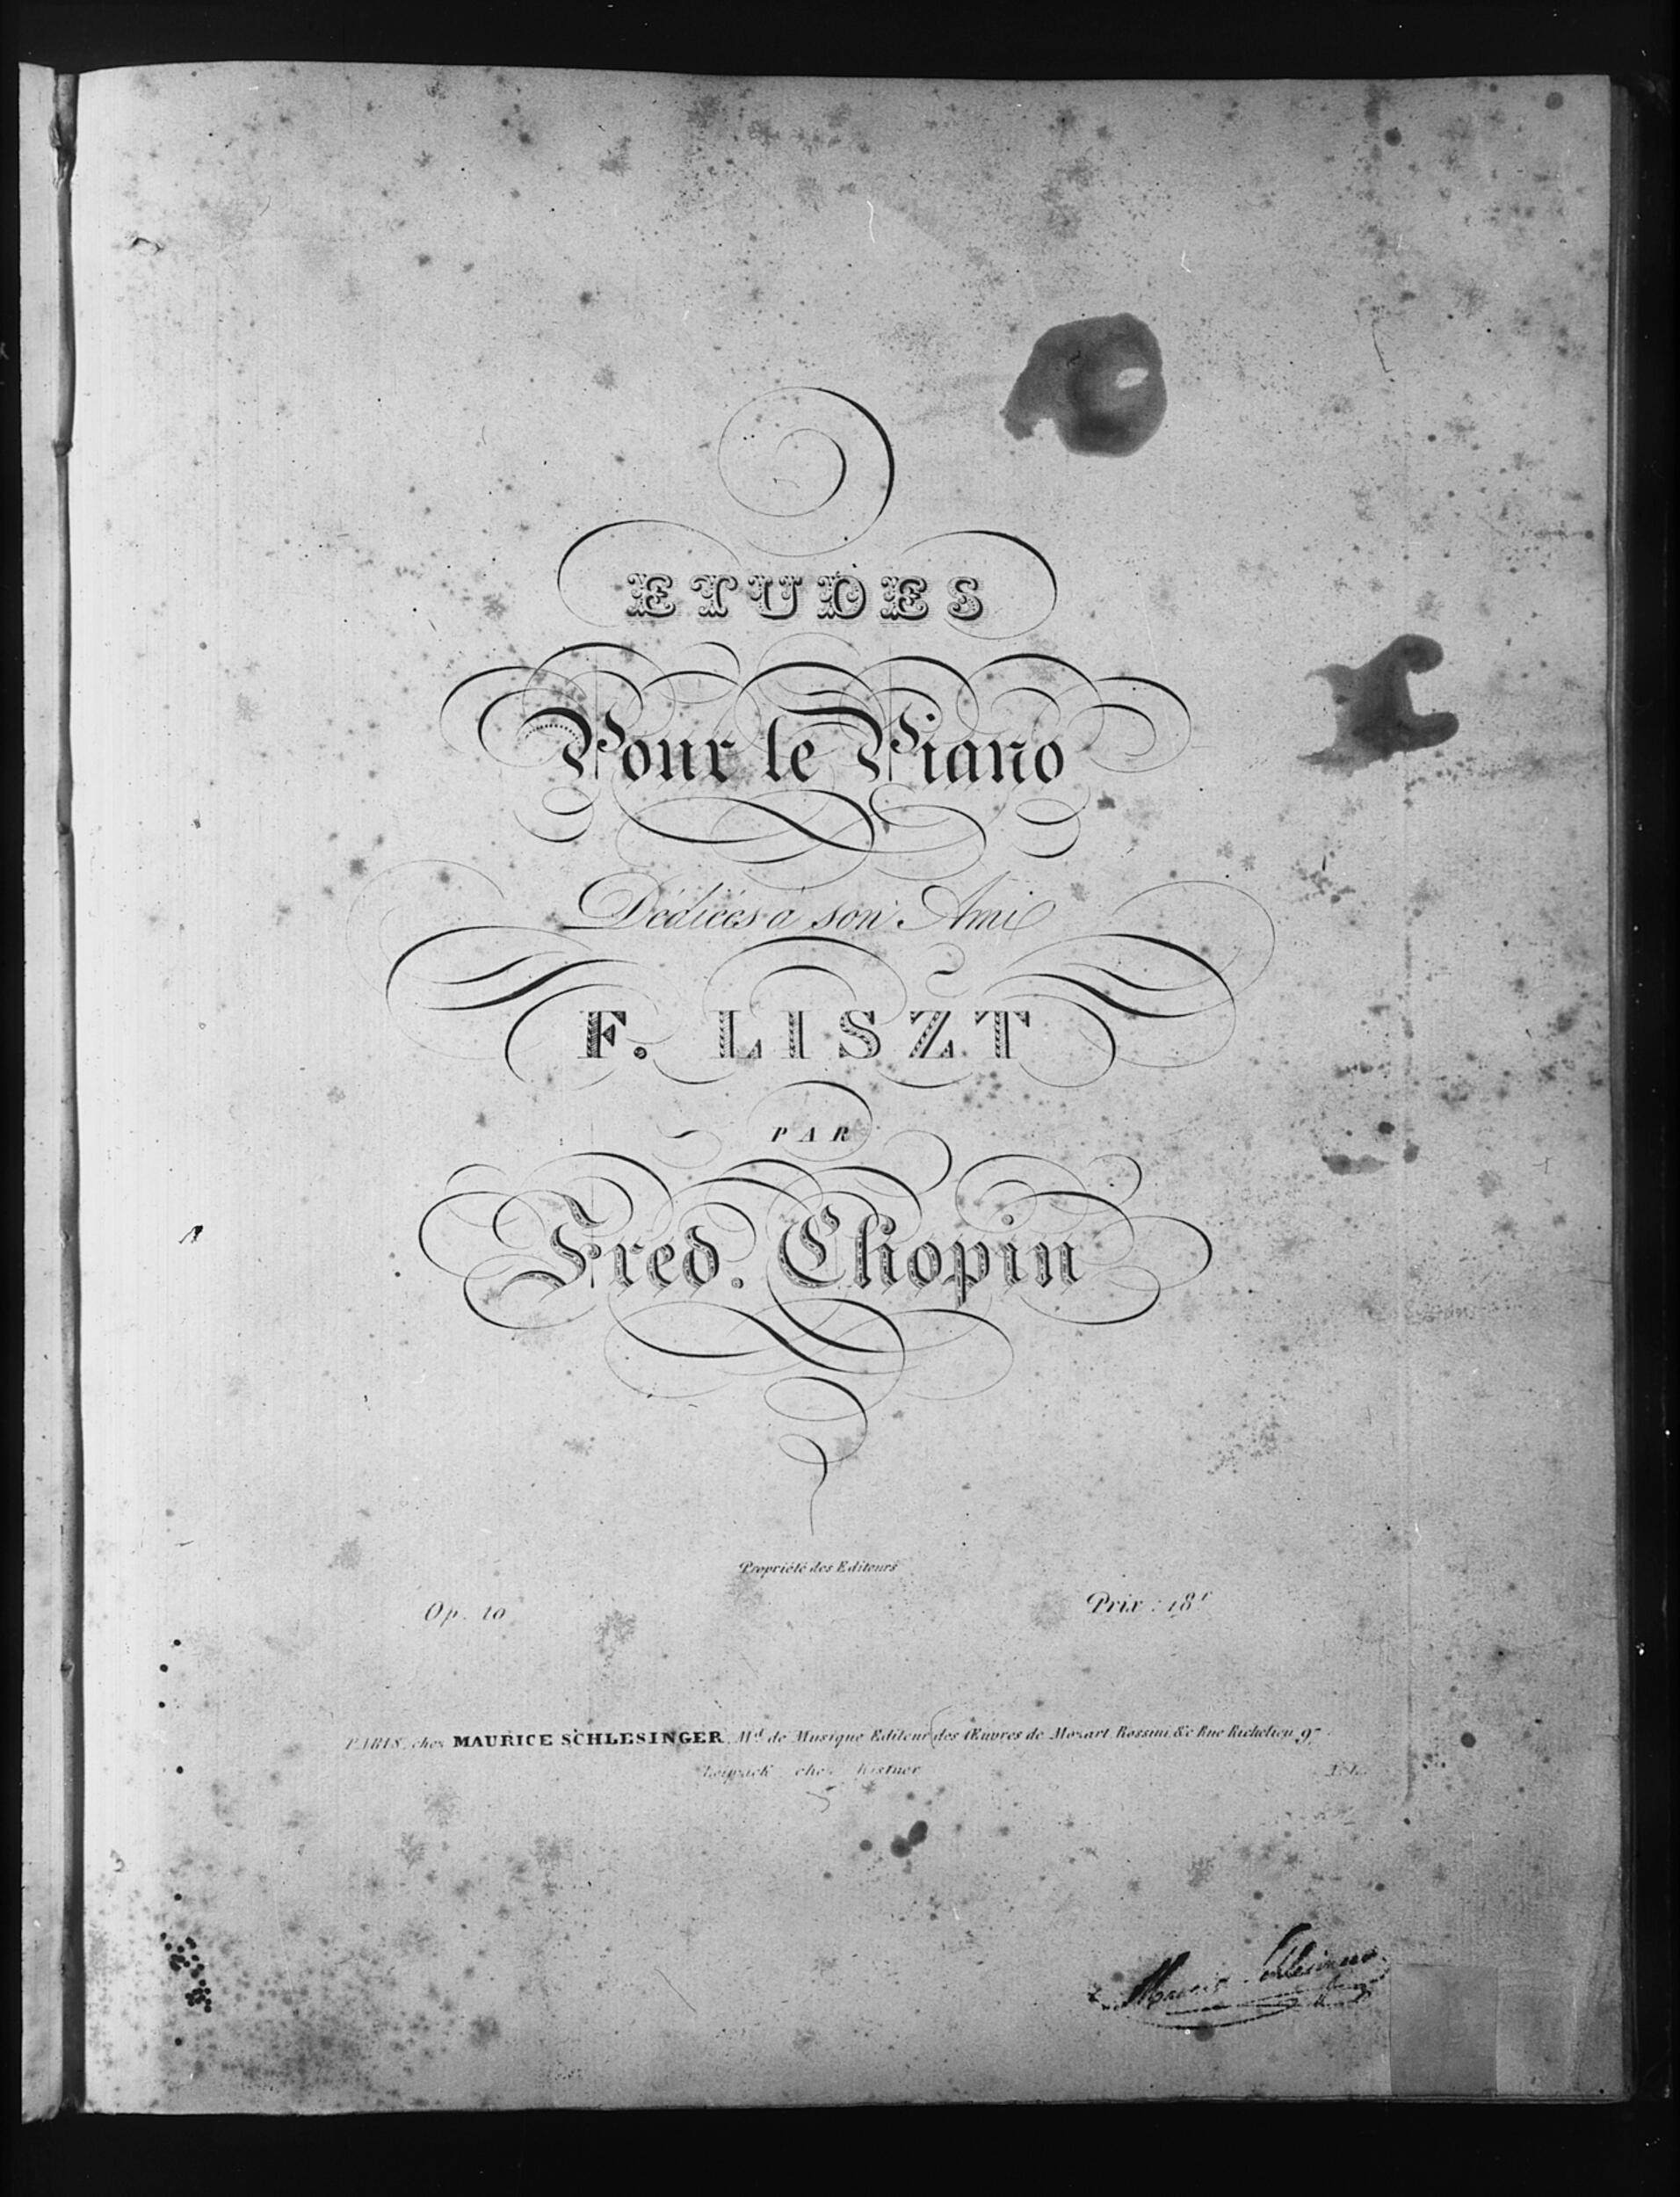 ETUDES
Pour le Piano
Dédiées à son Ami
F. LISZT
PAR
Fred. Chopin
Propriété des Editeurs
Op. 10
Prix : 18f
PARIS, chez MAURICE SCHLESINGER, Md. de Musique Editeur des Œuvres de Mozart Rossini &c Rue Richelieu 97
Leipzick chez Kistner
Maurice Schlesinger